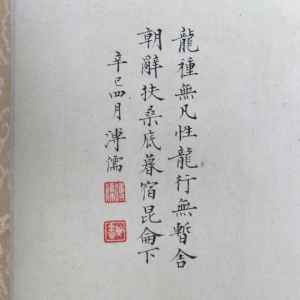 龍種無凡性龍行無暫舍
朝辭扶桑底暮宿昆侖下
辛巳四月溥儒